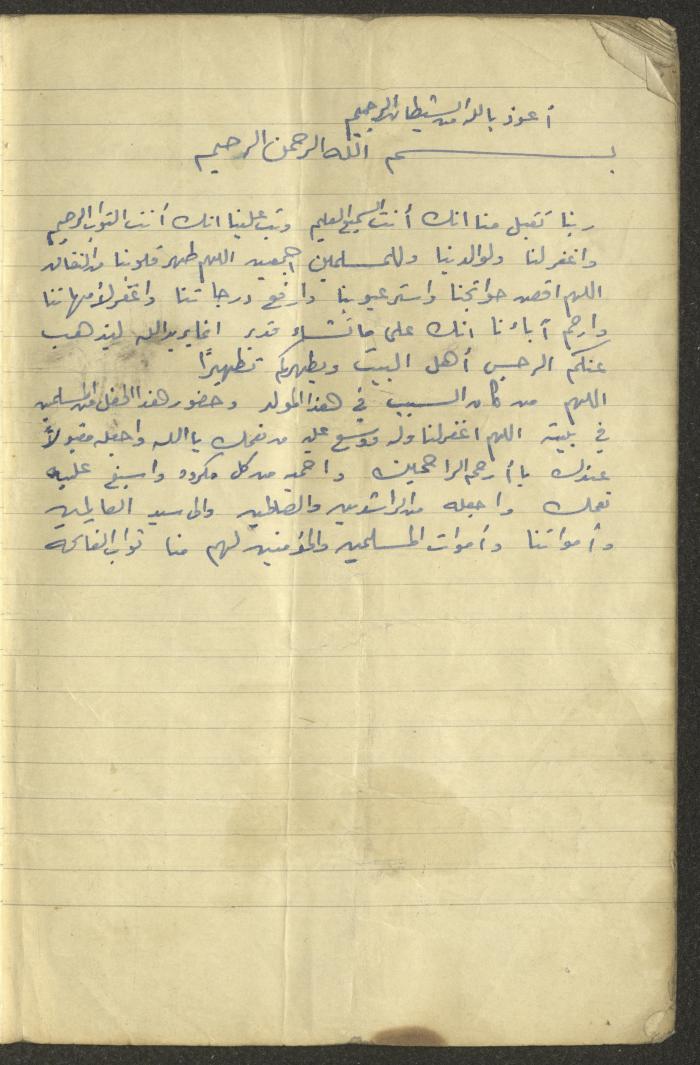 أعوذ بالله من الشيطان الرجيم
بسم الله الرحمن الرحيم
ربنا تقبل منا انك أنت السميع العليم وتب علينا انك أنت التواب الرحيم
واغفر لنا ولوالدينا وللمسلمين اجمعين اللهم طهر قلوبنا من النفاق
اللهم اقض حوائجنا واستر عيوبنا وارفع درجاتنا واغفر لأمهاتنا
وارحم آباءنا انك على ما تشاء قدير انما يريد الله ليذهب
عنكم الرجس أهل البيت ويطهركم تطهيرًا
اللهم من كان السبب في هذا المولد وحضور هذا الحفل من المسلمين
في بيته اللهم اغفر لنا وله ووسع عليه من نعمك يا الله واجعله مقبولاً
عندك يا أرحم الراحمين واحميه من كل مكروه واسبغ عليه
نعمك واجعله من الراشدين والصالحين والى سيد العالمين
وأمواتنا وأموات المسلمين والمؤمنين لهم منا ثواب الفاتحة